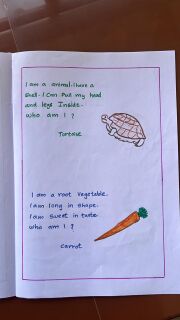 I am a animal. I have a
shell. I Can Pull my head
and legs Inside.
Who am I ?
Tortoise
I am a root vegetable.
I am long in shape.
I am sweet in taste.
who am I ?
carrot